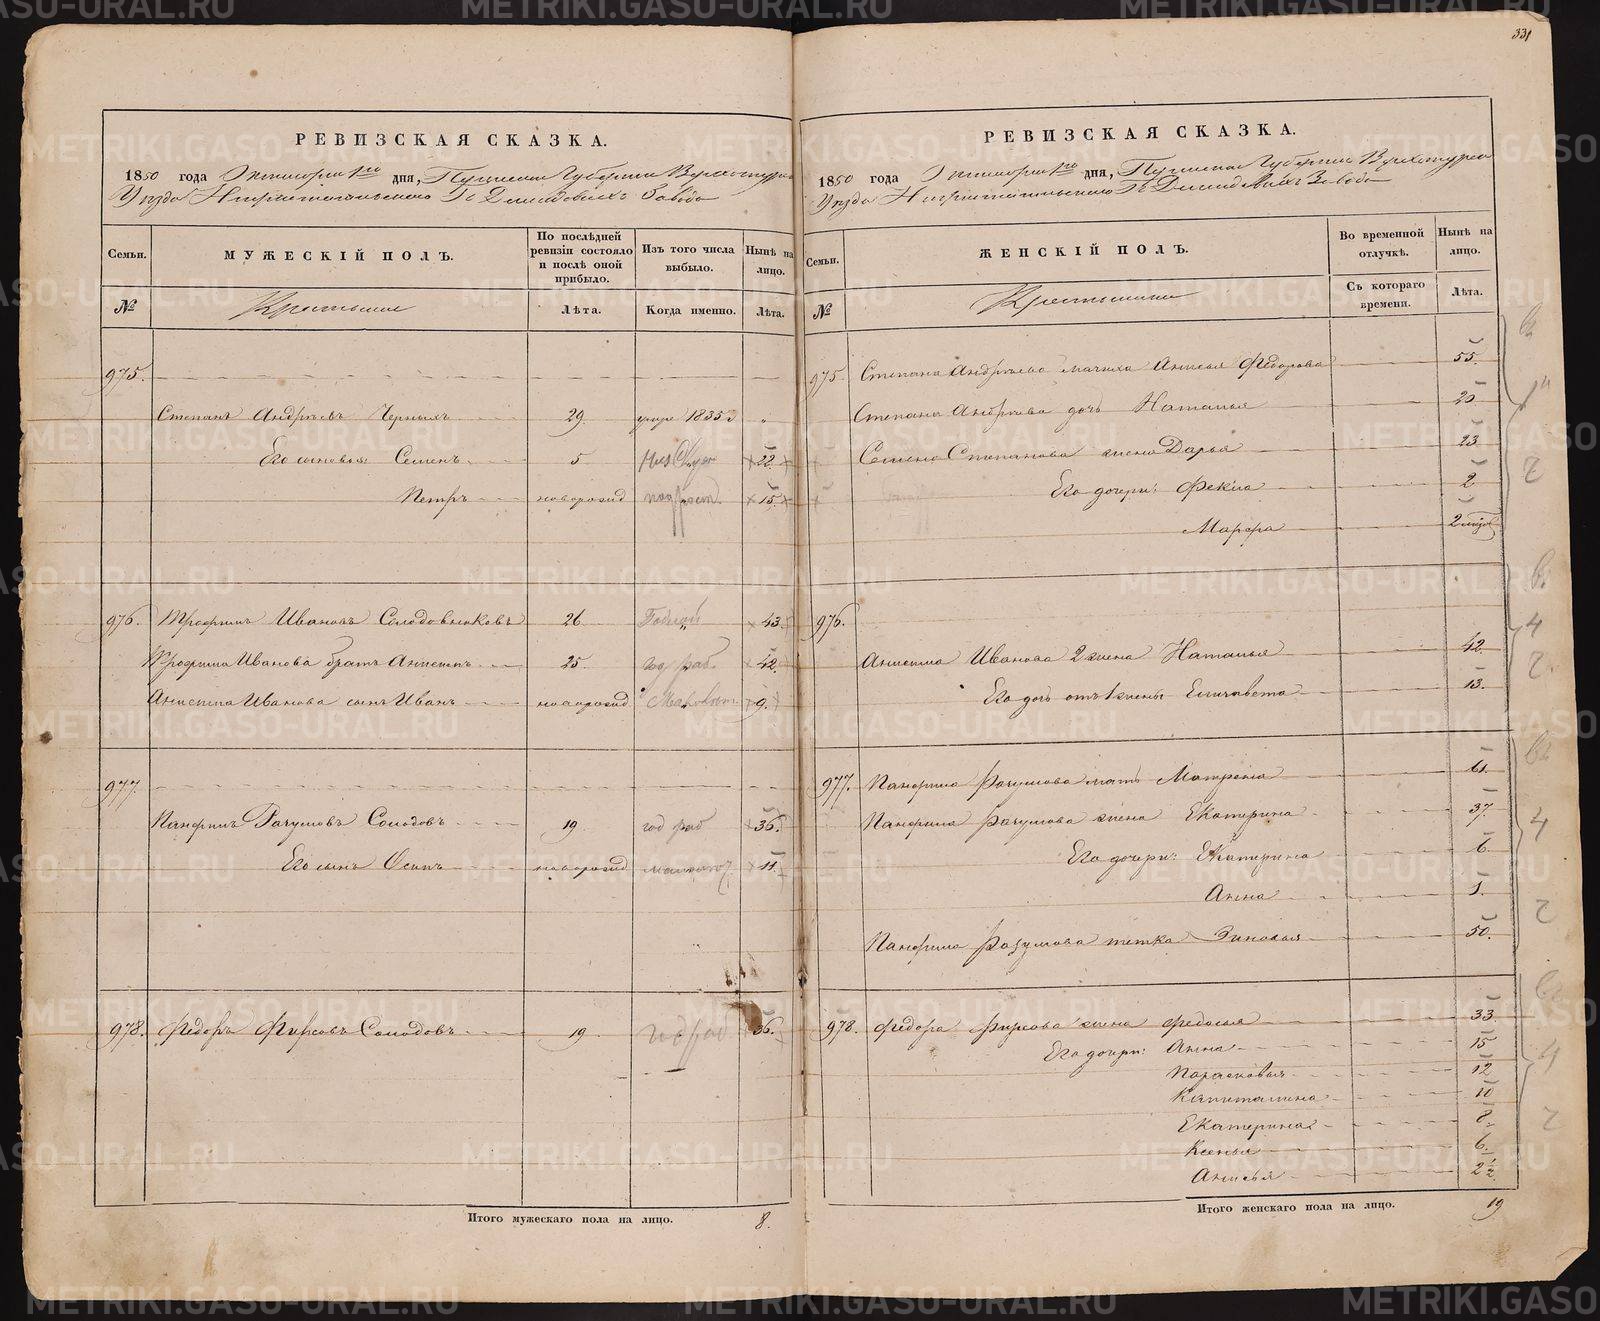 331
РЕВИЗСКАЯ СКАЗКА.
1850 года Октября 1го дня, Пермской Губернии Верхотурска
Уѣзда Нижнетагильского Гг. Демидовыхъ Завода
Семьи.
МУЖЕСКІЙ ПОЛЪ.
По послѣдней ревизіи состояло и послѣ оной прибыло.
Изъ того числа выбыло.
Нынѣ на лицо.
№
Крестьяне
Лѣта.
Когда именно.
Лѣта.
975.
Степанъ Андрѣевъ Черныхъ 29 1835
Его сыновья: Семенъ 5 22
Петръ новорожд 15
976. Трофимъ Ивановъ Солодовниковъ 26 43
Трофима Иванова братъ Анисимъ 25 год раб. 42
Анисима Иванова сынъ Иванъ новорожд 9.
977.
Панфилъ Разумовъ Солодовъ 19 год раб 36.
Его сынъ Осипъ новорожд малолет 11.
978. Федоръ Фирсовъ Солодовъ 19 год раб 36.
Итого мужескаго пола на лицо. 8.
РЕВИЗСКАЯ СКАЗКА.
1850 года Октября 1го дня, Пермской Губернии Верхотурска
Уѣзда Нижнетагильского Гг. Демидовыхъ Завода
Семьи.
ЖЕНСКІЙ ПОЛЪ.
Во временной отлучкѣ.
Нынѣ на лицо.
№
Крестьянки
Съ котораго времени.
Лѣта.
975. Степана Андрѣева мачиха Анисья Федорова 55.
Степана Андрѣева дочь Наталья 20
Семена Степанова жена Дарья 23
Его дочери: Фекла 2
Марфа 2
976.
Анисима Иванова 2 жена Наталья 42.
Его дочь отъ 1 жены Елизавета 13.
977. Панфила Разумова мать Матрена 61.
Панфила Разумова жена Екатерина 37.
Его дочери: Екатерина 6.
Анна 1.
Панфила Разумова тетка Зиновья 50.
978. Федора Фирсова жена Федосья 33.
Его дочери: Анна 15
Парасковья 12
Капиталина 10
Екатерина 8.
Ксенья 6.
Анисья 2 1/2
Итого женскаго пола на лицо. 19
METRIKI.GASO-URAL.RU